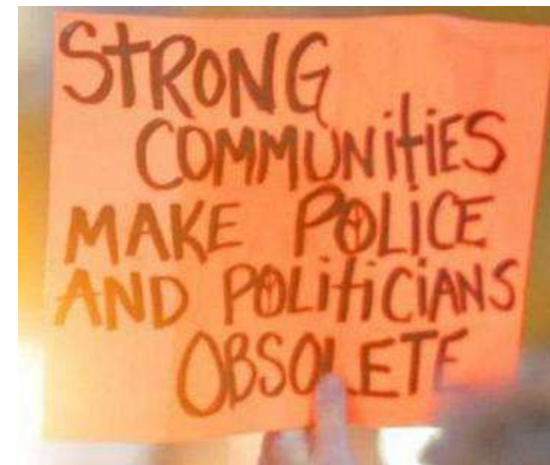 STRONG
COMMUNitiES
MAKE POLICE
AND POLiticiANS
OBSOLETE